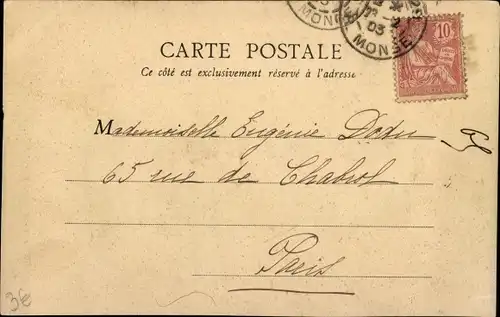 MONSE
10
03
MONSE
CARTE POSTALE
Ce côté est exclusivement réservé à l'adresse
Mademoiselle Eugénie Dodu
65 rue de Chabrol
Paris
3€